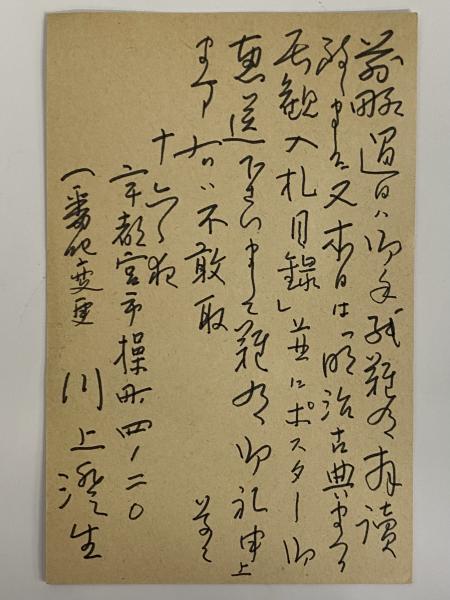 前略過日ハ御手紙難有拝讀
致しました又本日は「明治古典
展観入札目録」並にポスター御
恵送下さいまして難有御礼申上
ます 右ハ不敢取 草々
十六夜
宇都宮市操町四ノ二〇
(番地変更 川上澄生